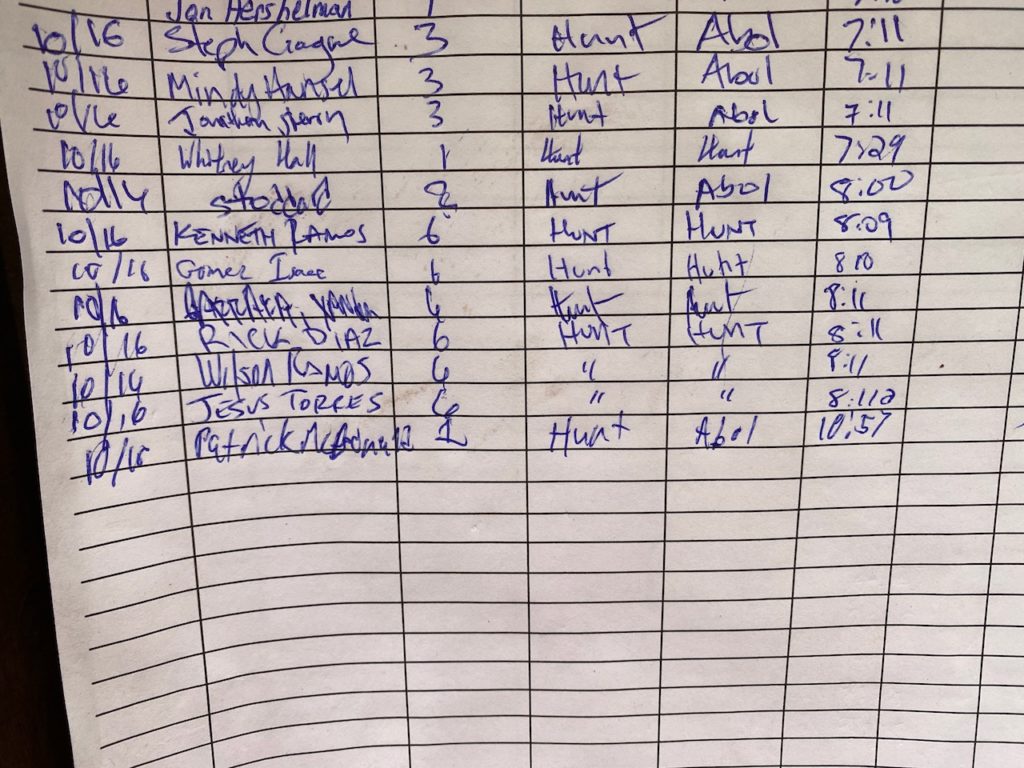 Jon Hershelman 1
10/16 Steph 3 Hunt Abol 7:11
10/16 Mindy 3 Hunt Abol 7:11
10/16 Jonathan 3 Hunt Abol 7:11
10/16 Whitney Hall 1 Hunt Hunt 7:29
Stoddad 2 Hunt Abol 8:00
10/16 KENNETH RAMOS 6 HUNT HUNT 8:09
10/16 Gomez Isaac 6 Hunt Hunt 810
10/16 6 Hunt Hunt 8:11
10/16 RICK DIAZ 6 HUNT HUNT 8:11
Wilson RAMOS 6 " " 8:11
10/16 JESUS TORRES 6 " "
Patrick 1 Hunt Abol 10:57